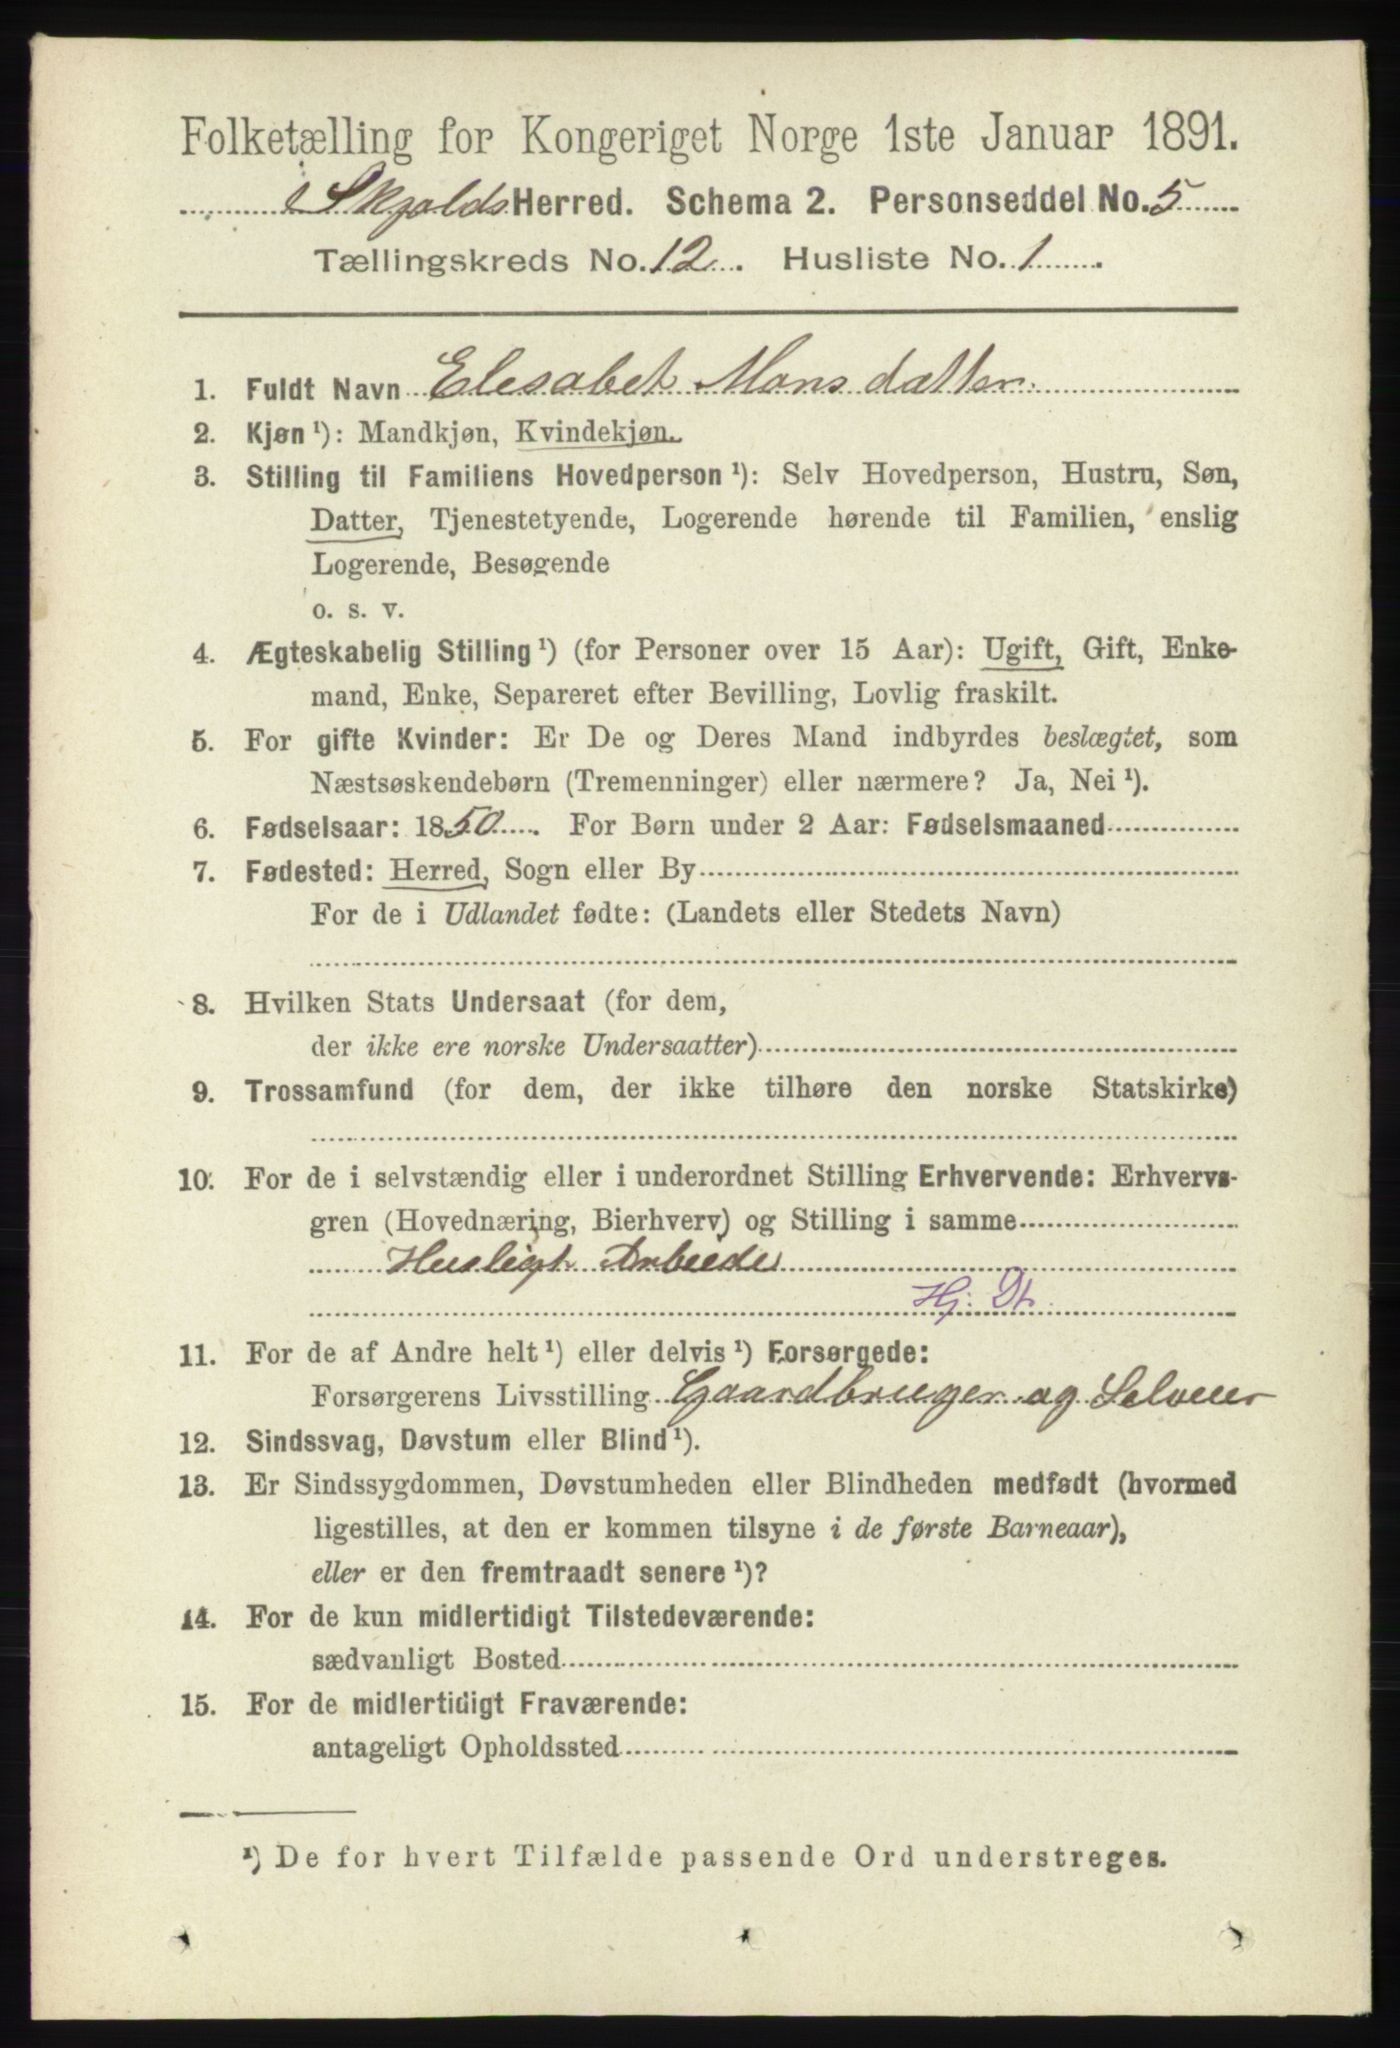 Folketælling for Kongeriget Norge 1ste Januar 1891.
Skjolds Herred. Schema 2. Personseddel No. 5
Tællingskreds No. 12. Husliste No. 1
1. Fuldt Navn Elesabet Monsdatter
2. Kjøn ¹): Mandkjøn, Kvindekjøn.
3. Stilling til Familiens Hovedperson ¹): Selv Hovedperson, Hustru, Søn,
Datter, Tjenestetyende, Logerende hørende til Familien, enslig
Logerende, Besøgende
o. s. v.
4. Ægteskabelig Stilling ¹) (for Personer over 15 Aar): Ugift, Gift, Enke-
mand, Enke, Separeret efter Bevilling, Lovlig fraskilt.
5. For gifte Kvinder: Er De og Deres Mand indbyrdes beslægtet, som
Næstsøskendebørn (Tremenninger) eller nærmere? Ja, Nei ¹).
6. Fødselsaar: 1850. For Børn under 2 Aar: Fødselsmaaned
7. Fødested: Herred, Sogn eller By
For de i Udlandet fødte: (Landets eller Stedets Navn)
8. Hvilken Stats Undersaat (for dem,
der ikke ere norske Undersaatter)
9. Trossamfund (for dem, der ikke tilhøre den norske Statskirke)
10. For de i selvstændig eller i underordnet Stilling Erhvervende: Erhvervs-
gren (Hovednæring, Bierhverv) og Stilling i samme
Husligt Arbeide
Hj. Dt.
11. For de af Andre helt ¹) eller delvis ¹) Forsørgede:
Forsørgerens Livsstilling Gaardbruger og Selveier
12. Sindssvag, Døvstum eller Blind ¹).
13. Er Sindssygdommen, Døvstumheden eller Blindheden medfødt (hvormed
ligestilles, at den er kommen tilsyne i de første Barneaar),
eller er den fremtraadt senere ¹)?
14. For de kun midlertidigt Tilstedeværende:
sædvanligt Bosted
15. For de midlertidigt Fraværende:
antageligt Opholdssted
¹) De for hvert Tilfælde passende Ord understreges.